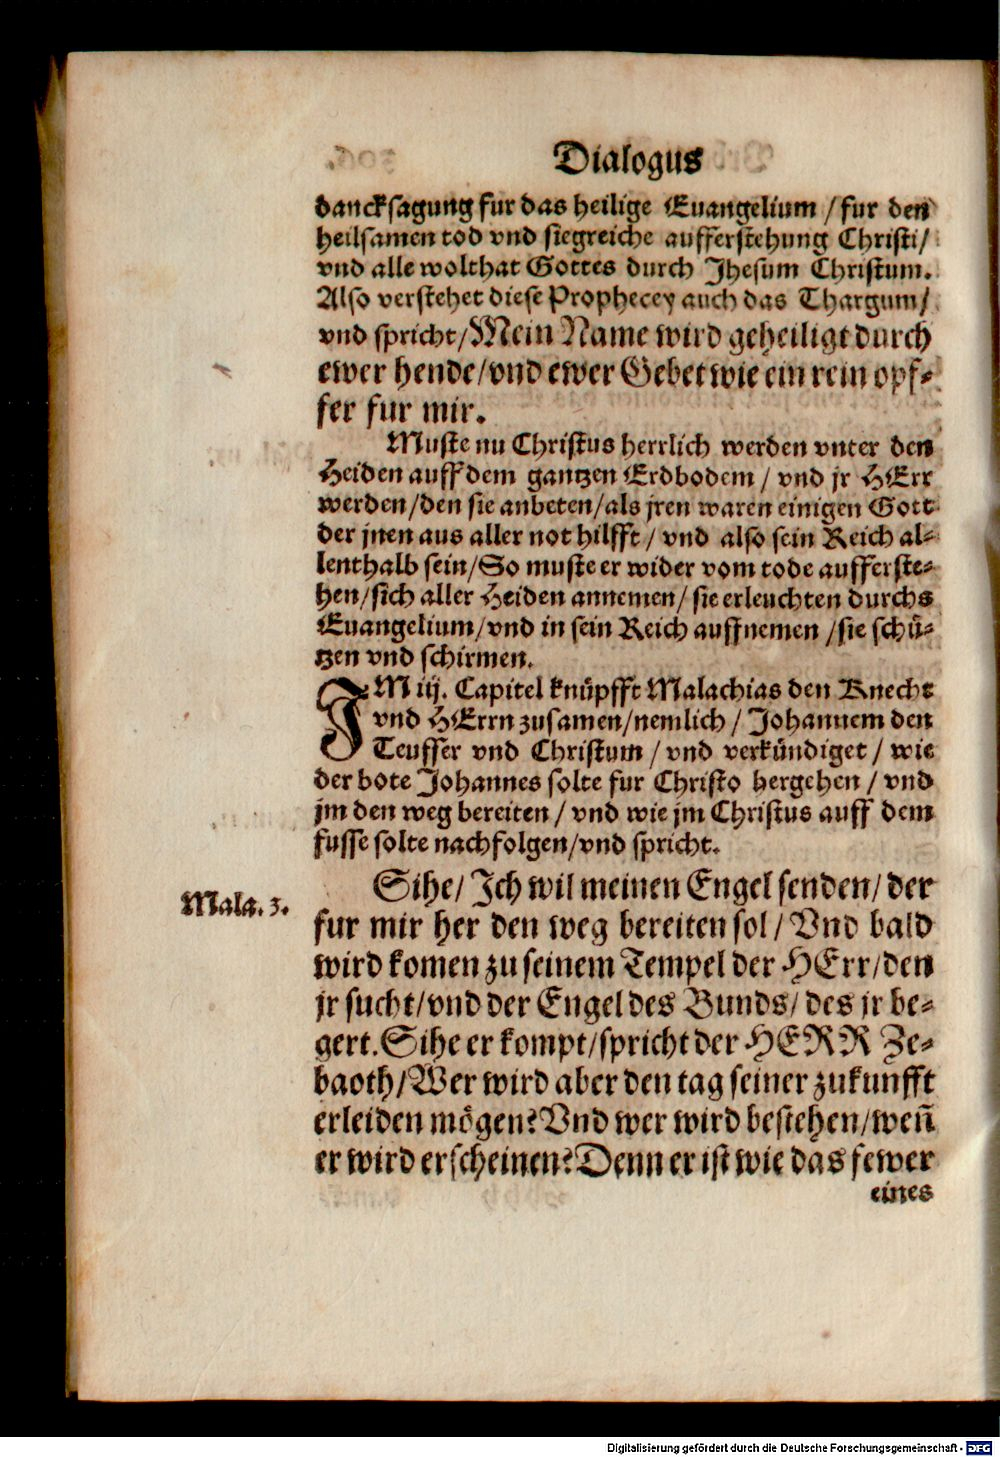 Dialogus
dancksagung fur das heilige Euangelium / fur den
heilsamen tod vnd siegreiche aufferstehung Christi/
vnd alle wolthat Gottes durch Jhesum Christum.
Also verstehet diese Prophecey auch das Thargum/
vnd spricht/Mein Name wird geheiligt durch
ewer hende/vnd ewer Gebet wie ein rein opf-
fer fur mir.
Muste nu Christus herrlich werden vnter den
Heiden auff dem gantzen Erdbodem / vnd jr HErr
werden/den sie anbeten/als jren waren einigen Gott
der jnen aus aller not hilfft / vnd also sein Reich al-
lenthalb sein/So muste er wider vom tode aufferste-
hen/sich aller Heiden annemen/ sie erleuchten durchs
Euangelium/vnd in sein Reich auffnemen /sie schü-
tzen vnd schirmen.
JM iij. Capitel knüpfft Malachias den Knecht
vnd HErrn zusamen/nemlich / Johannem den
Teuffer vnd Christum / vnd verkündiget / wie
der bote Johannes solte fur Christo hergehen / vnd
jm den weg bereiten / vnd wie jm Christus auff dem
fusse solte nachfolgen/vnd spricht.
Mala. 3.
Sihe/ Jch wil meinen Engel senden/ der
fur mir her den weg bereiten sol / Vnd bald
wird komen zu seinem Tempel der HErr/den
jr sucht/vnd der Engel des Bunds/ des jr be-
gert.Sihe er kompt/spricht der HERR Ze-
baoth/Wer wird aber den tag seiner zukunfft
erleiden mögen?Vnd wer wird bestehen/weñ
er wird erscheinen?Denn er ist wie das fewer
eines
Digitalisierung gefördert durch die Deutsche Forschungsgemeinschaft - DFG